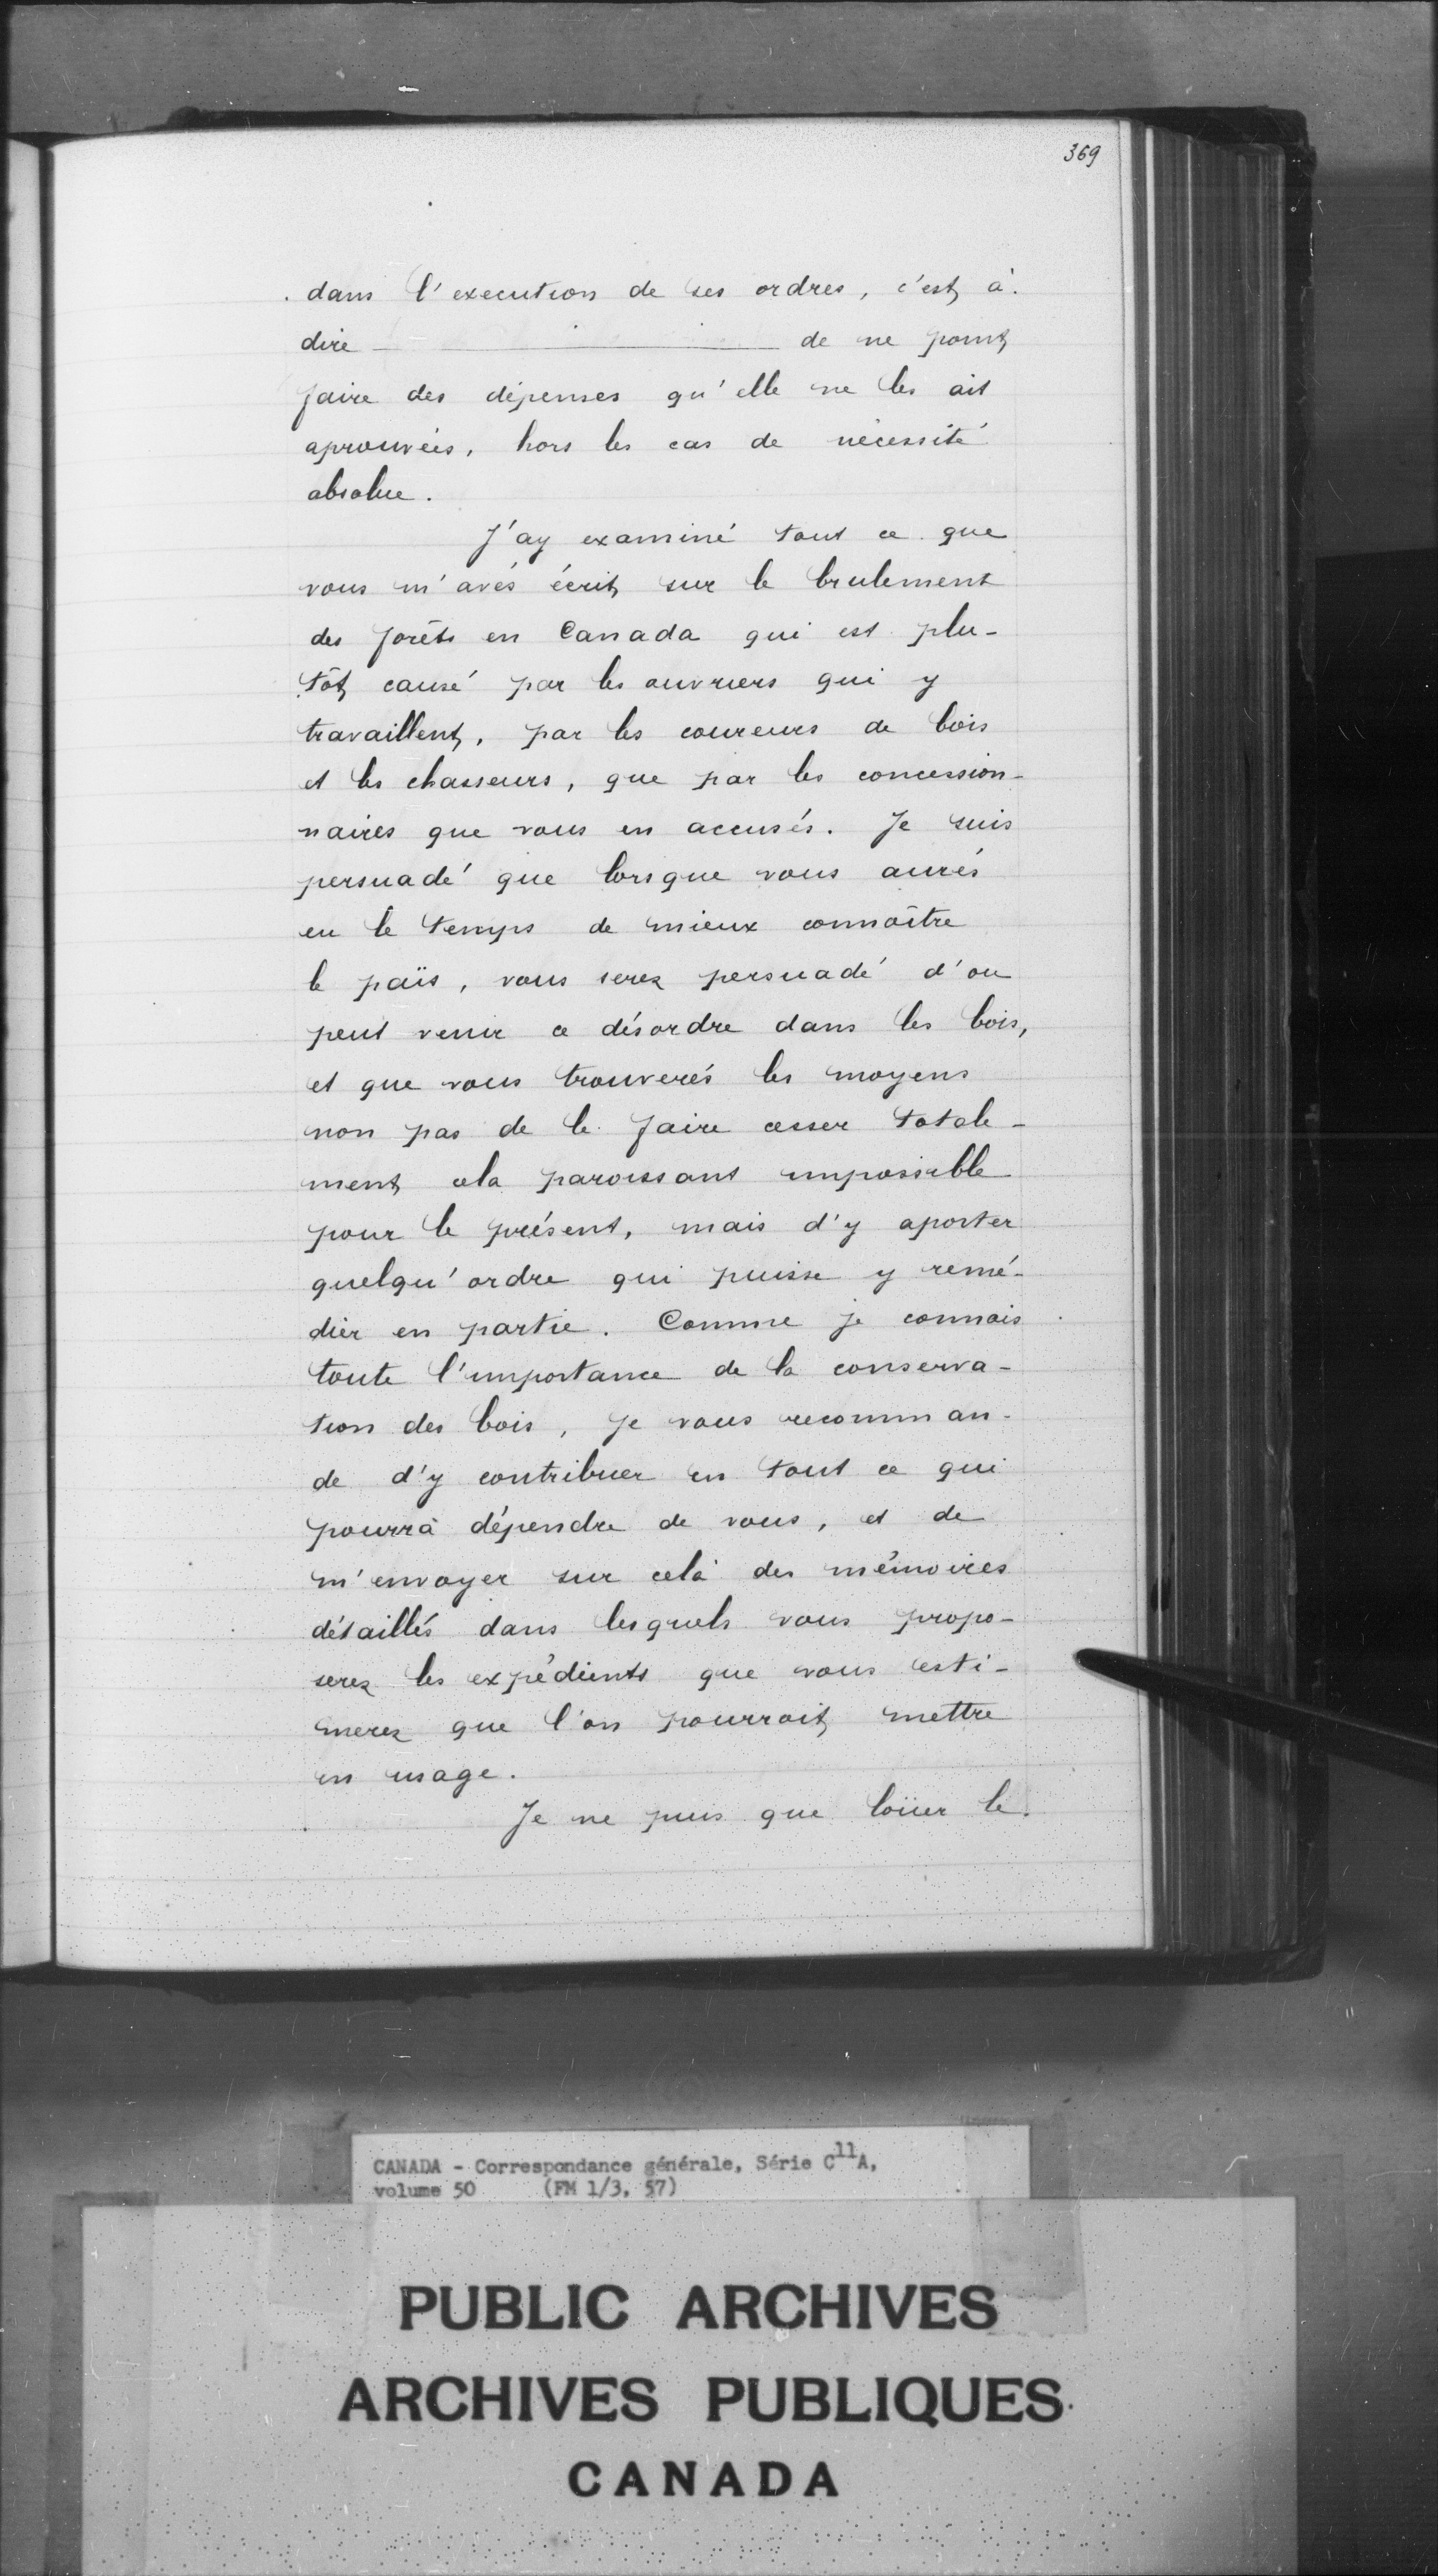 369
dans l'execution de ses ordres, c'est à
dire ——— de ne point
faire des dépenses qu'elle ne les ait
aprouvées, hors les cas de nécessité
absolue.
J'ay examiné tout ce que
vous m'avés écrit sur le brulement
des forêts en Canada qui est plu-
tôt causé par les ouvriers qui y
travaillent, par les coureurs de bois
et les chasseurs, que par les concession-
naires que vous en accusés. Je suis
persuadé que lorsque vous aurés
eu le temps de mieux connoître
le païs, vous serez persuadé d'ou
peut venir ce désordre dans les bois,
et que vous trouverés les moyens
non pas de le faire cesser totale-
ment cela paroissant impossible
pour le présent, mais d'y aporter
quelqu'ordre qui puisse y remé-
dier en partie. Comme je connois
toute l'importance de la conserva-
tion des bois, je vous recomman-
de d'y contribuer en tout ce qui
pourrà dépendre de vous, et de
m'envoyer sur celà des mémoires
détaillés dans lesquels vous propo-
serez les expédients que vous esti-
merez que l'on pourroit mettre
en usage.
Je ne puis que loüer le
CANADA - Correspondance générale, Série C11A,
volume 50 (FM 1/3, 57)
PUBLIC ARCHIVES
ARCHIVES PUBLIQUES
CANADA